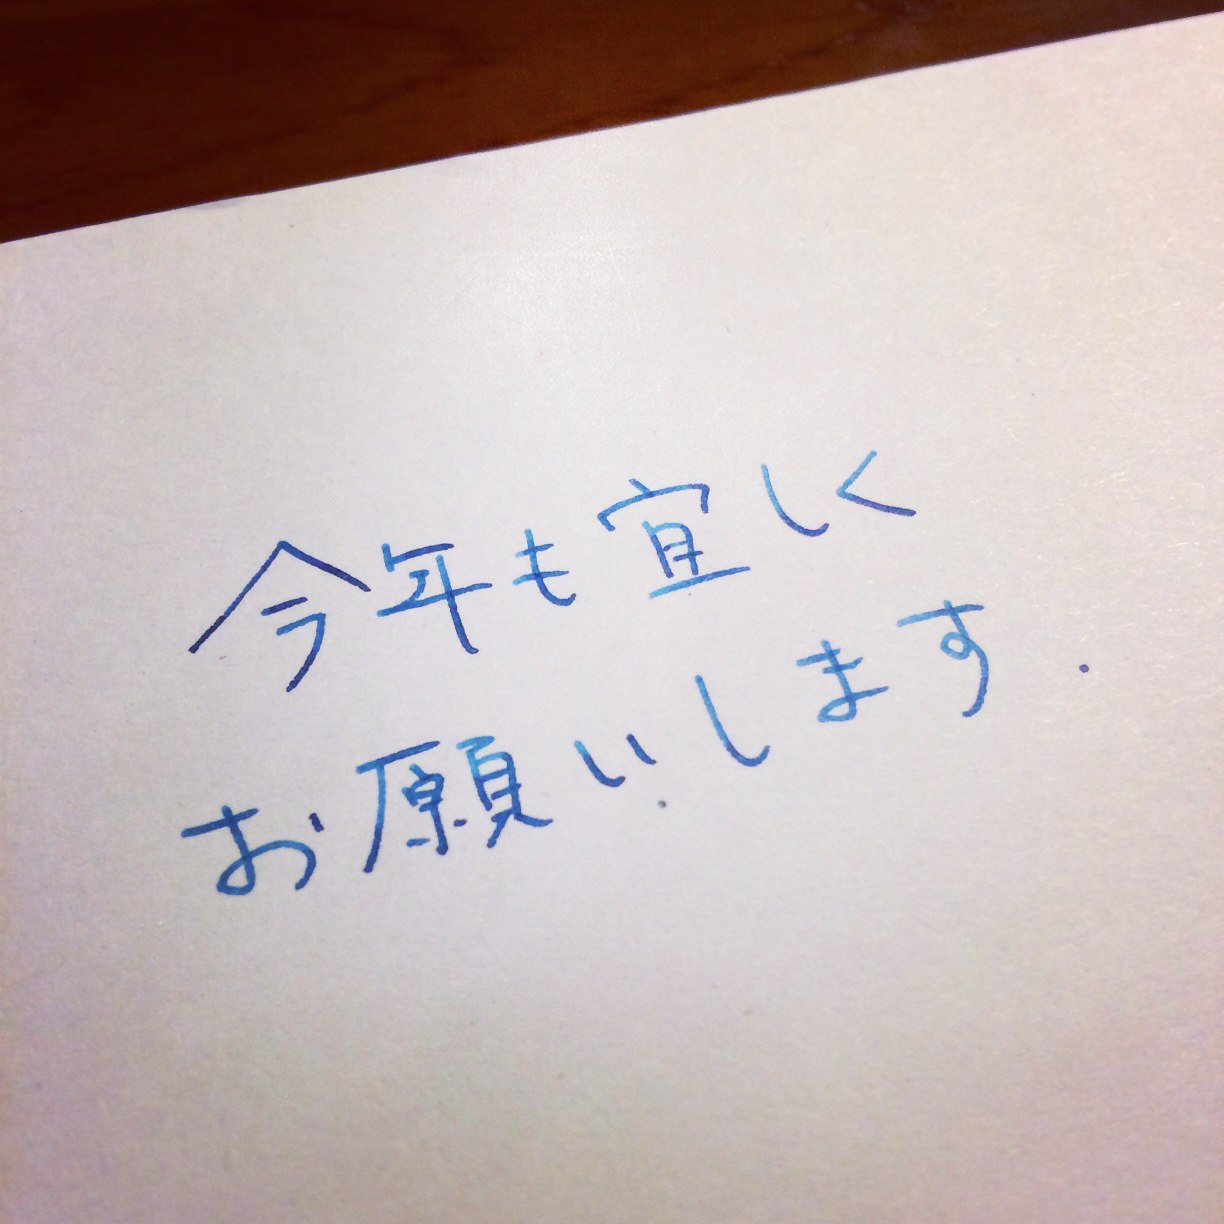 今年も宜しく
お願いします.